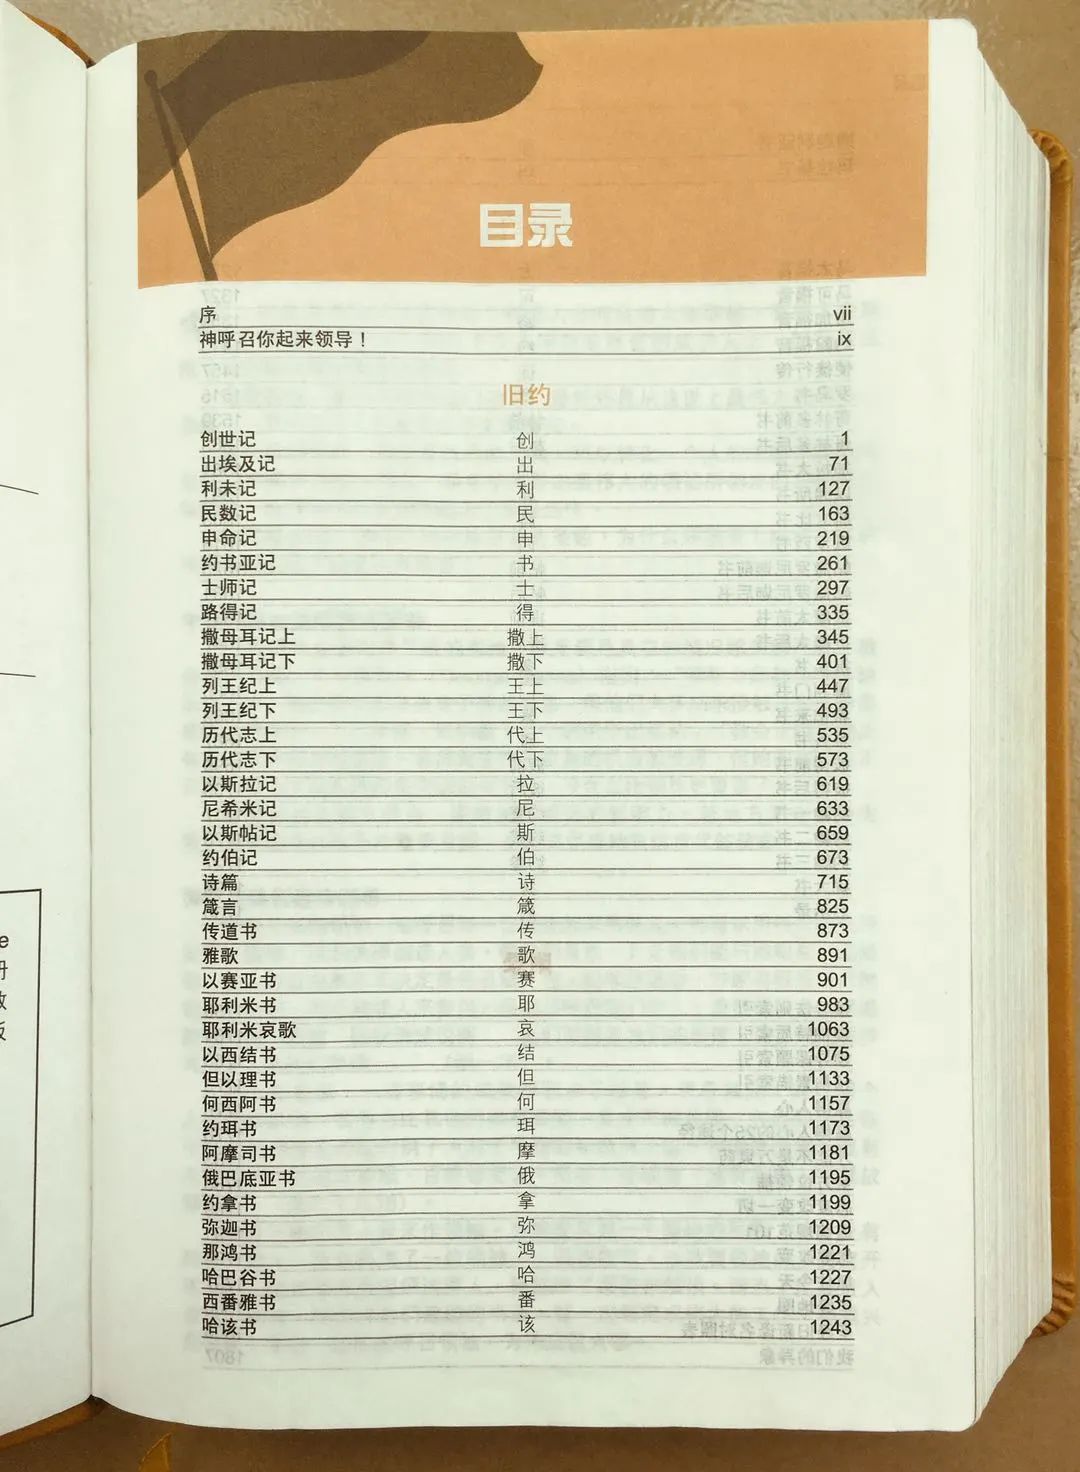 目录
序 vii
神呼召你起来领导！ ix
旧约
创世记 创 1
出埃及记 出 71
利未记 利 127
民数记 民 163
申命记 申 219
约书亚记 书 261
士师记 士 297
路得记 得 335
撒母耳记上 撒上 345
撒母耳记下 撒下 401
列王纪上 王上 447
列王纪下 王下 493
历代志上 代上 535
历代志下 代下 573
以斯拉记 拉 619
尼希米记 尼 633
以斯帖记 斯 659
约伯记 伯 673
诗篇 诗 715
箴言 箴 825
传道书 传 873
雅歌 歌 891
以赛亚书 赛 901
耶利米书 耶 983
耶利米哀歌 哀 1063
以西结书 结 1075
但以理书 但 1133
何西阿书 何 1157
约珥书 珥 1173
阿摩司书 摩 1181
俄巴底亚书 俄 1195
约拿书 拿 1199
弥迦书 弥 1209
那鸿书 鸿 1221
哈巴谷书 哈 1227
西番雅书 番 1235
哈该书 该 1243